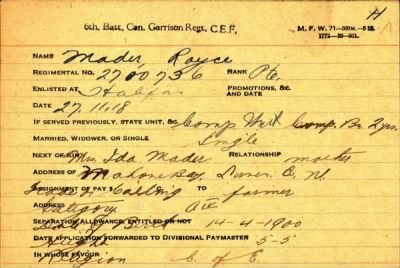 H
6th. Batt. Can. Garrison Regt. C.E.F.
M. F. W. 71
NAME Mader, Royce
REGIMENTAL NO. 2700736 RANK Pte.
ENLISTED AT Halifax PROMOTIONS, &C. AND DATE
DATE 27.11.18
IF SERVED PREVIOUSLY, STATE UNIT, &C. Comp. Bn 2 yrs.
MARRIED, WIDOWER, OR SINGLE Single
NEXT OF KIN Mrs. Ida Mader RELATIONSHIP mother
ADDRESS OF Mahone Bay, Lunen. Co. N.S.
ASSIGNMENT OF PAY $ TO
Trade or Calling farmer
ADDRESS
Category AII
SEPARATION ALLOWANCE, ENTITLED OR NOT
Date of Birth 14-4-1900
DATE APPLICATION FORWARDED TO DIVISIONAL PAYMASTER
Height 5-5
IN WHOSE FAVOUR
Religion C. of E.